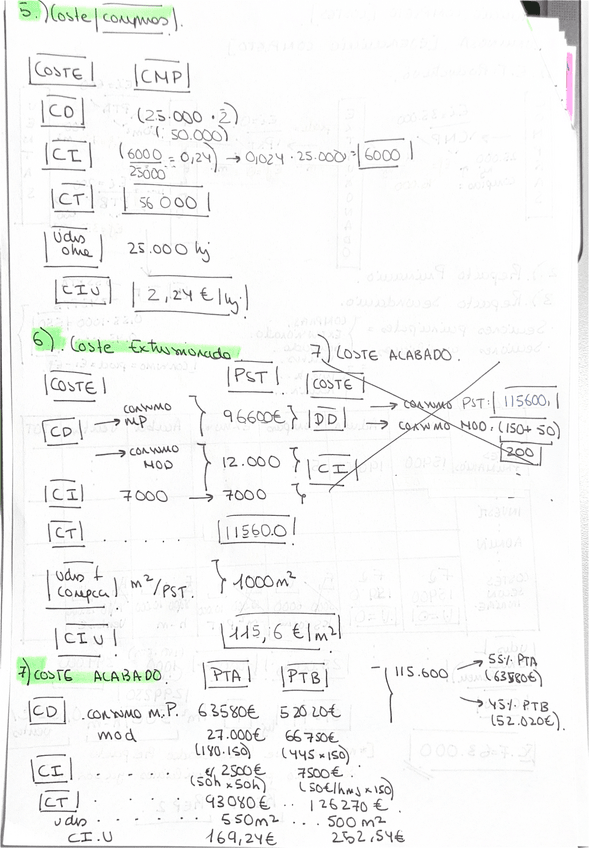 5.) Coste | compras |.
|COSTE| |CMP|
|CD| (25.000 · 2)
(50.000)
|CI| (6000/25000 = 0,24) → 0,024 · 25.000 = |6000|
|CT| |56000|
|Udrs| 25.000 kg
|CIU| |2,24 €/kg|
6). Coste Extrusionado
|COSTE| |PST|
|CD| → consumo M.P } 96600€
→ consumo MOD } 12.000
|CI| 7000 → 7000 }
|CT| . . . . . |115600|
|Udrs + compra| m²/PST. } 1000 m²
|CIU| |115,6 €/m²|
7) COSTE ACABADO.
|COSTE|
} |DD| → consumo PST: |115600,|
→ consumo MOD: (150+50)
|200|
} |CI|
7) COSTE ACABADO. |PTA| |PTB|
|CD| consumo M.P. 63580€ 52020€
mod 27.000€ 66750€
(180.150) (445×150)
|CI| . . . . . 2500€ 7500€.
(50h × 50h) (50€/hm × 150)
|CT| . . . . . 93080€ . . 126270€.
udrs . . . . . 550 m² . . . 500 m²
CI.U 169,24€ 252,54€
- } 115.600 → 55% PTA
(63580€)
→ 45% PTB
(52.020€).